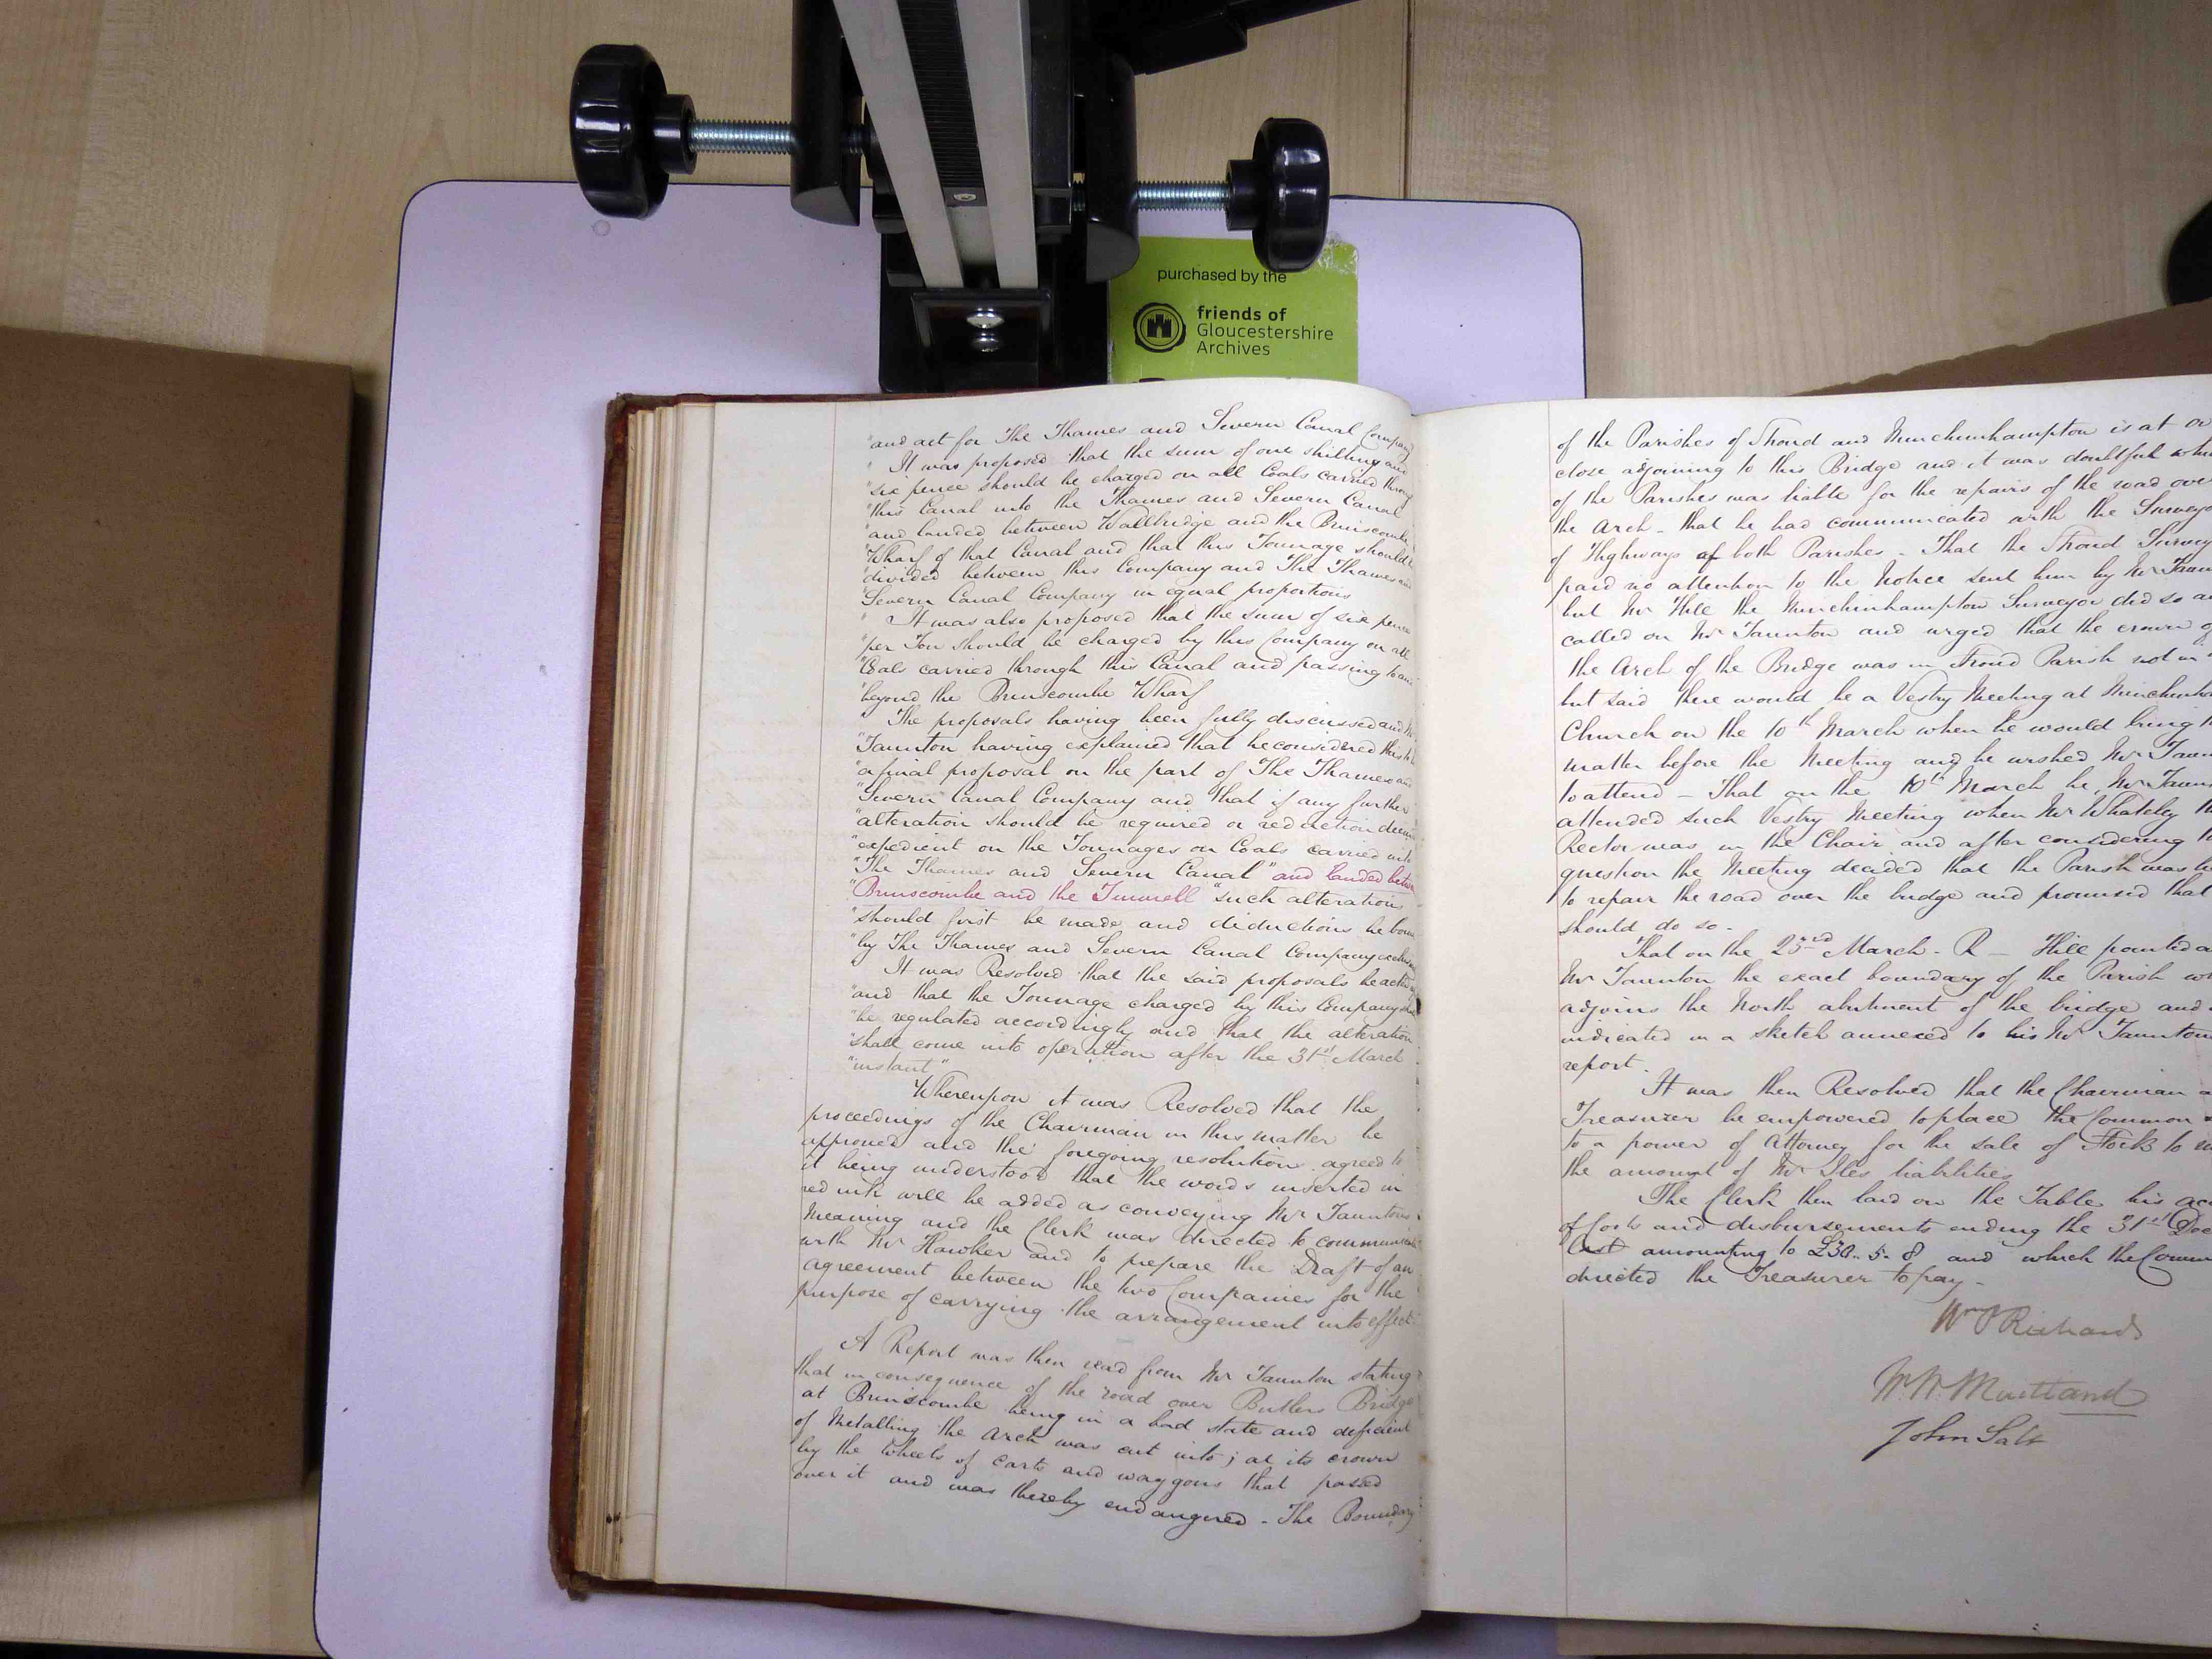 purchased by the
friends of
Gloucestershire
Archives
"and act for The Thames and Severn Canal Company
" It was proposed that the sum of one shilling and
"six pence should be charged on all Coals carried through
"this Canal into the Thames and Severn Canal
"and landed between Wallbridge and the Brinscombe
"Wharf of that Canal and that this Tonnage should
"divided between this Company and The Thames and
"Severn Canal Company in equal proportions
" It was also proposed that the sum of six pence
"per Ton should be charged by this Company on all
"Coals carried through this Canal and passing to and
"beyond the Brinscombe Wharf
" The proposals having been fully discussed and
"Taunton having explained that he considered this to
"a final proposal on the part of The Thames and
"Severn Canal Company and that if any further
"alteration should be required or reduction
"expedient on the Tonnages on Coals carried
"The Thames and Severn Canal" and landed
"Brinscombe and the Tunnell "such alterations
"should first be made and deductions be
"by The Thames and Severn Canal Company
" It was Resolved that the said proposals be
"and that the Tonnage charged by this Company
"be regulated accordingly and that the alteration
"shall come into operation after the 31st March
"instant"
Whereupon it was Resolved that the
proceedings of the Chairman in this matter be
approved and the foregoing resolutions agreed to
it being understood that the words inserted in
red ink will be added as conveying Mr Tauntons
Meaning and the Clerk was directed to communicate
with Mr Hawker and to prepare the Draft of an
agreement between the two Companies for the
purpose of carrying the arrangement into effect
A Report was then read from Mr Taunton stating
that in consequence of the road over Butlers Bridge
at Brinscombe being in a bad state and deficient
of Metalling the Arch was cut into; at its crown
by the Wheels of Carts and waggons that passed
over it and was thereby endangered - The Boundary
of the Parishes of Stroud and Minchinhampton is at or
close adjoining to this Bridge and it was doubtful
of the Parishes was liable for the repairs of the road over
the Arch - that he had communicated with the
of Highways of both Parishes - That the Stroud
paid no attention to the Notice sent him by Mr
but Mr Hill the Minchinhampton Surveyor did so
called on Mr Taunton and urged that the crown of
the Arch of the Bridge was in Stroud Parish not in
but said there would be a Vestry Meeting at
Church on the 10th March when he would bring
matter before the Meeting and he wished Mr
to attend - That on the 10th March he, Mr
attended such Vestry Meeting when Mr Whateley
Rector was in the Chair and after considering
question the Meeting decided that the Parish was
to repair the road over the bridge and promised that
should do so -
That on the 23rd March - R - Hill pointed
Mr Taunton the exact boundary of the Parish
adjoins the North abutment of the bridge and
indicated in a sketch annexed to his Mr
report.
It was then Resolved that the Chairman
Treasurer be empowered to place the Common
to a power of Attorney for the sale of Stock to
the amount of Mr Iles liabilities
The Clerk then laid on the Table his
of costs and disbursements ending the 31st
last amounting to £30.. 5. 8 and which the
directed the Treasurer to pay -
Wm P Richards
W. W. Maitland
John Salt